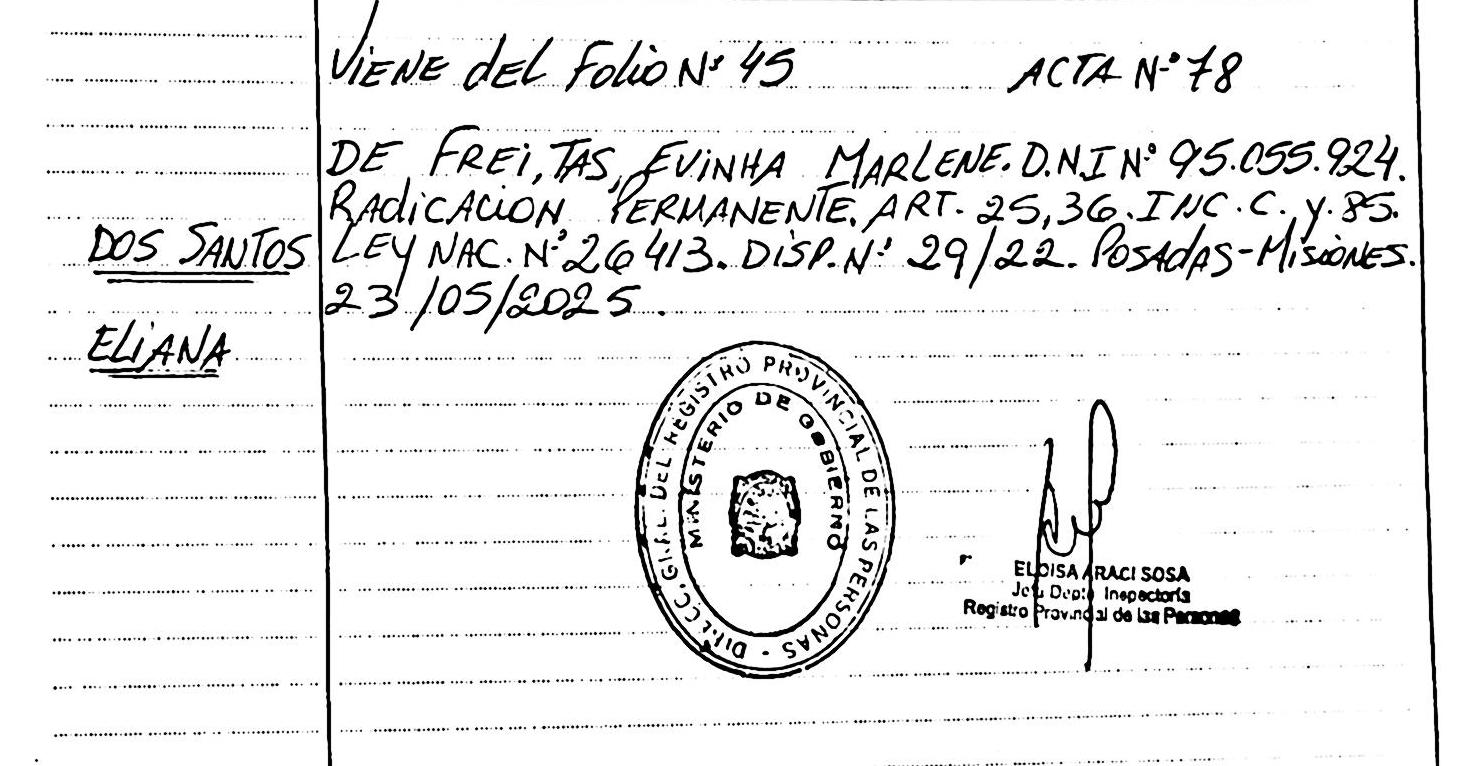 VIENE del Folio N° 45 ACTA N° 78
DE FREI,TAS, EVINHA MARLENE. D.N.I N° 95.055.924.
RADICACION PERMANENTE. ART. 25,36. INC. C. y. 85.
DOS SANTOS
LEY NAC. N° 26413. DISP. N° 29/22. POSADAS-MISIONES.
23/05/2025.
ELIANA
REGISTRO PROVINCIAL DE LAS PERSONAS
MINISTERIO DE GOBIERNO
ELOISA ARACI SOSA
Jefa Depto Inspectoría
Registro Provincial de las Personas